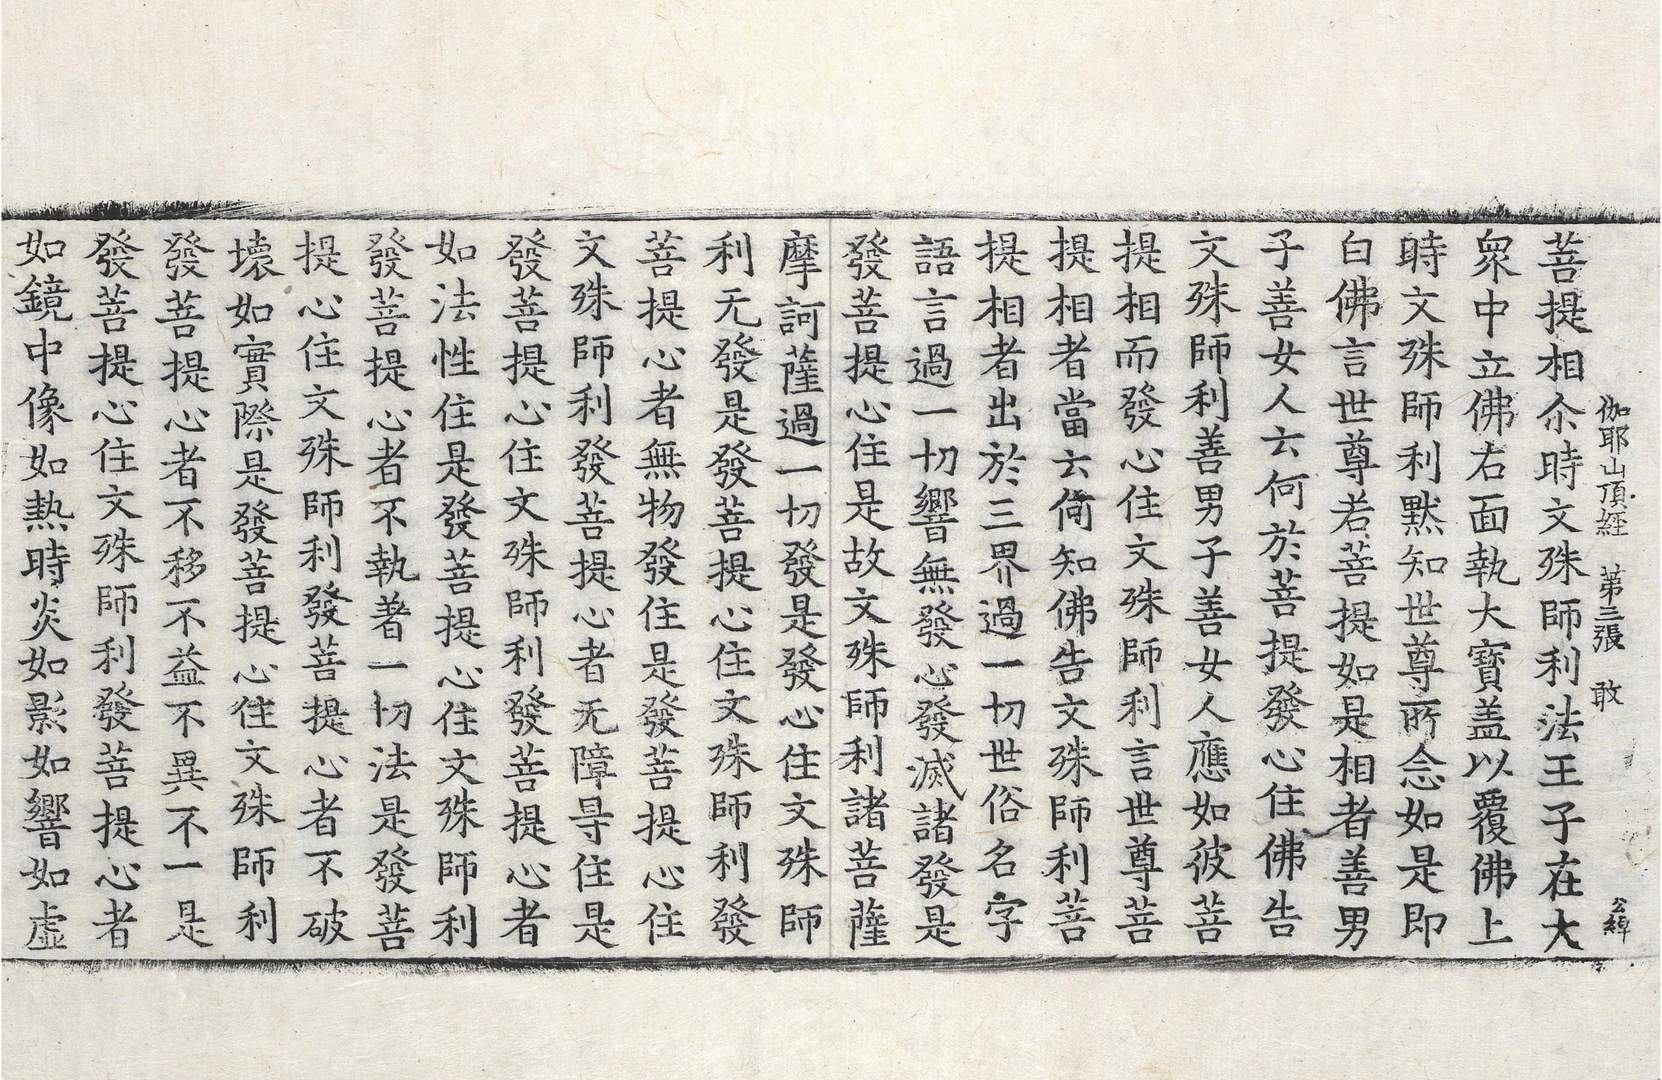 伽耶山頂經 第三張 敢 公綽
菩提相尒時文殊師利法王子在大
衆中立佛右面執大寶盖以覆佛上
時文殊師利默知世尊所念如是即
白佛言世尊若菩提如是相者善男
子善女人云何於菩提發心住佛告
文殊師利善男子善女人應如彼菩
提相而發心住文殊師利言世尊菩
提相者當云何知佛告文殊師利菩
提相者出於三界過一切世俗名字
語言過一切響無發心發滅諸發是
發菩提心住是故文殊師利諸菩薩
摩訶薩過一切發是發心住文殊師
利无發是發菩提心住文殊師利發
菩提心者無物發住是發菩提心住
文殊師利發菩提心者无障㝵住是
發菩提心住文殊師利發菩提心者
如法性住是發菩提心住文殊師利
發菩提心者不執著一切法是發菩
提心住文殊師利發菩提心者不破
壞如實際是發菩提心住文殊師利
發菩提心者不移不益不異不一是
發菩提心住文殊師利發菩提心者
如鏡中像如熱時炎如影如響如虛